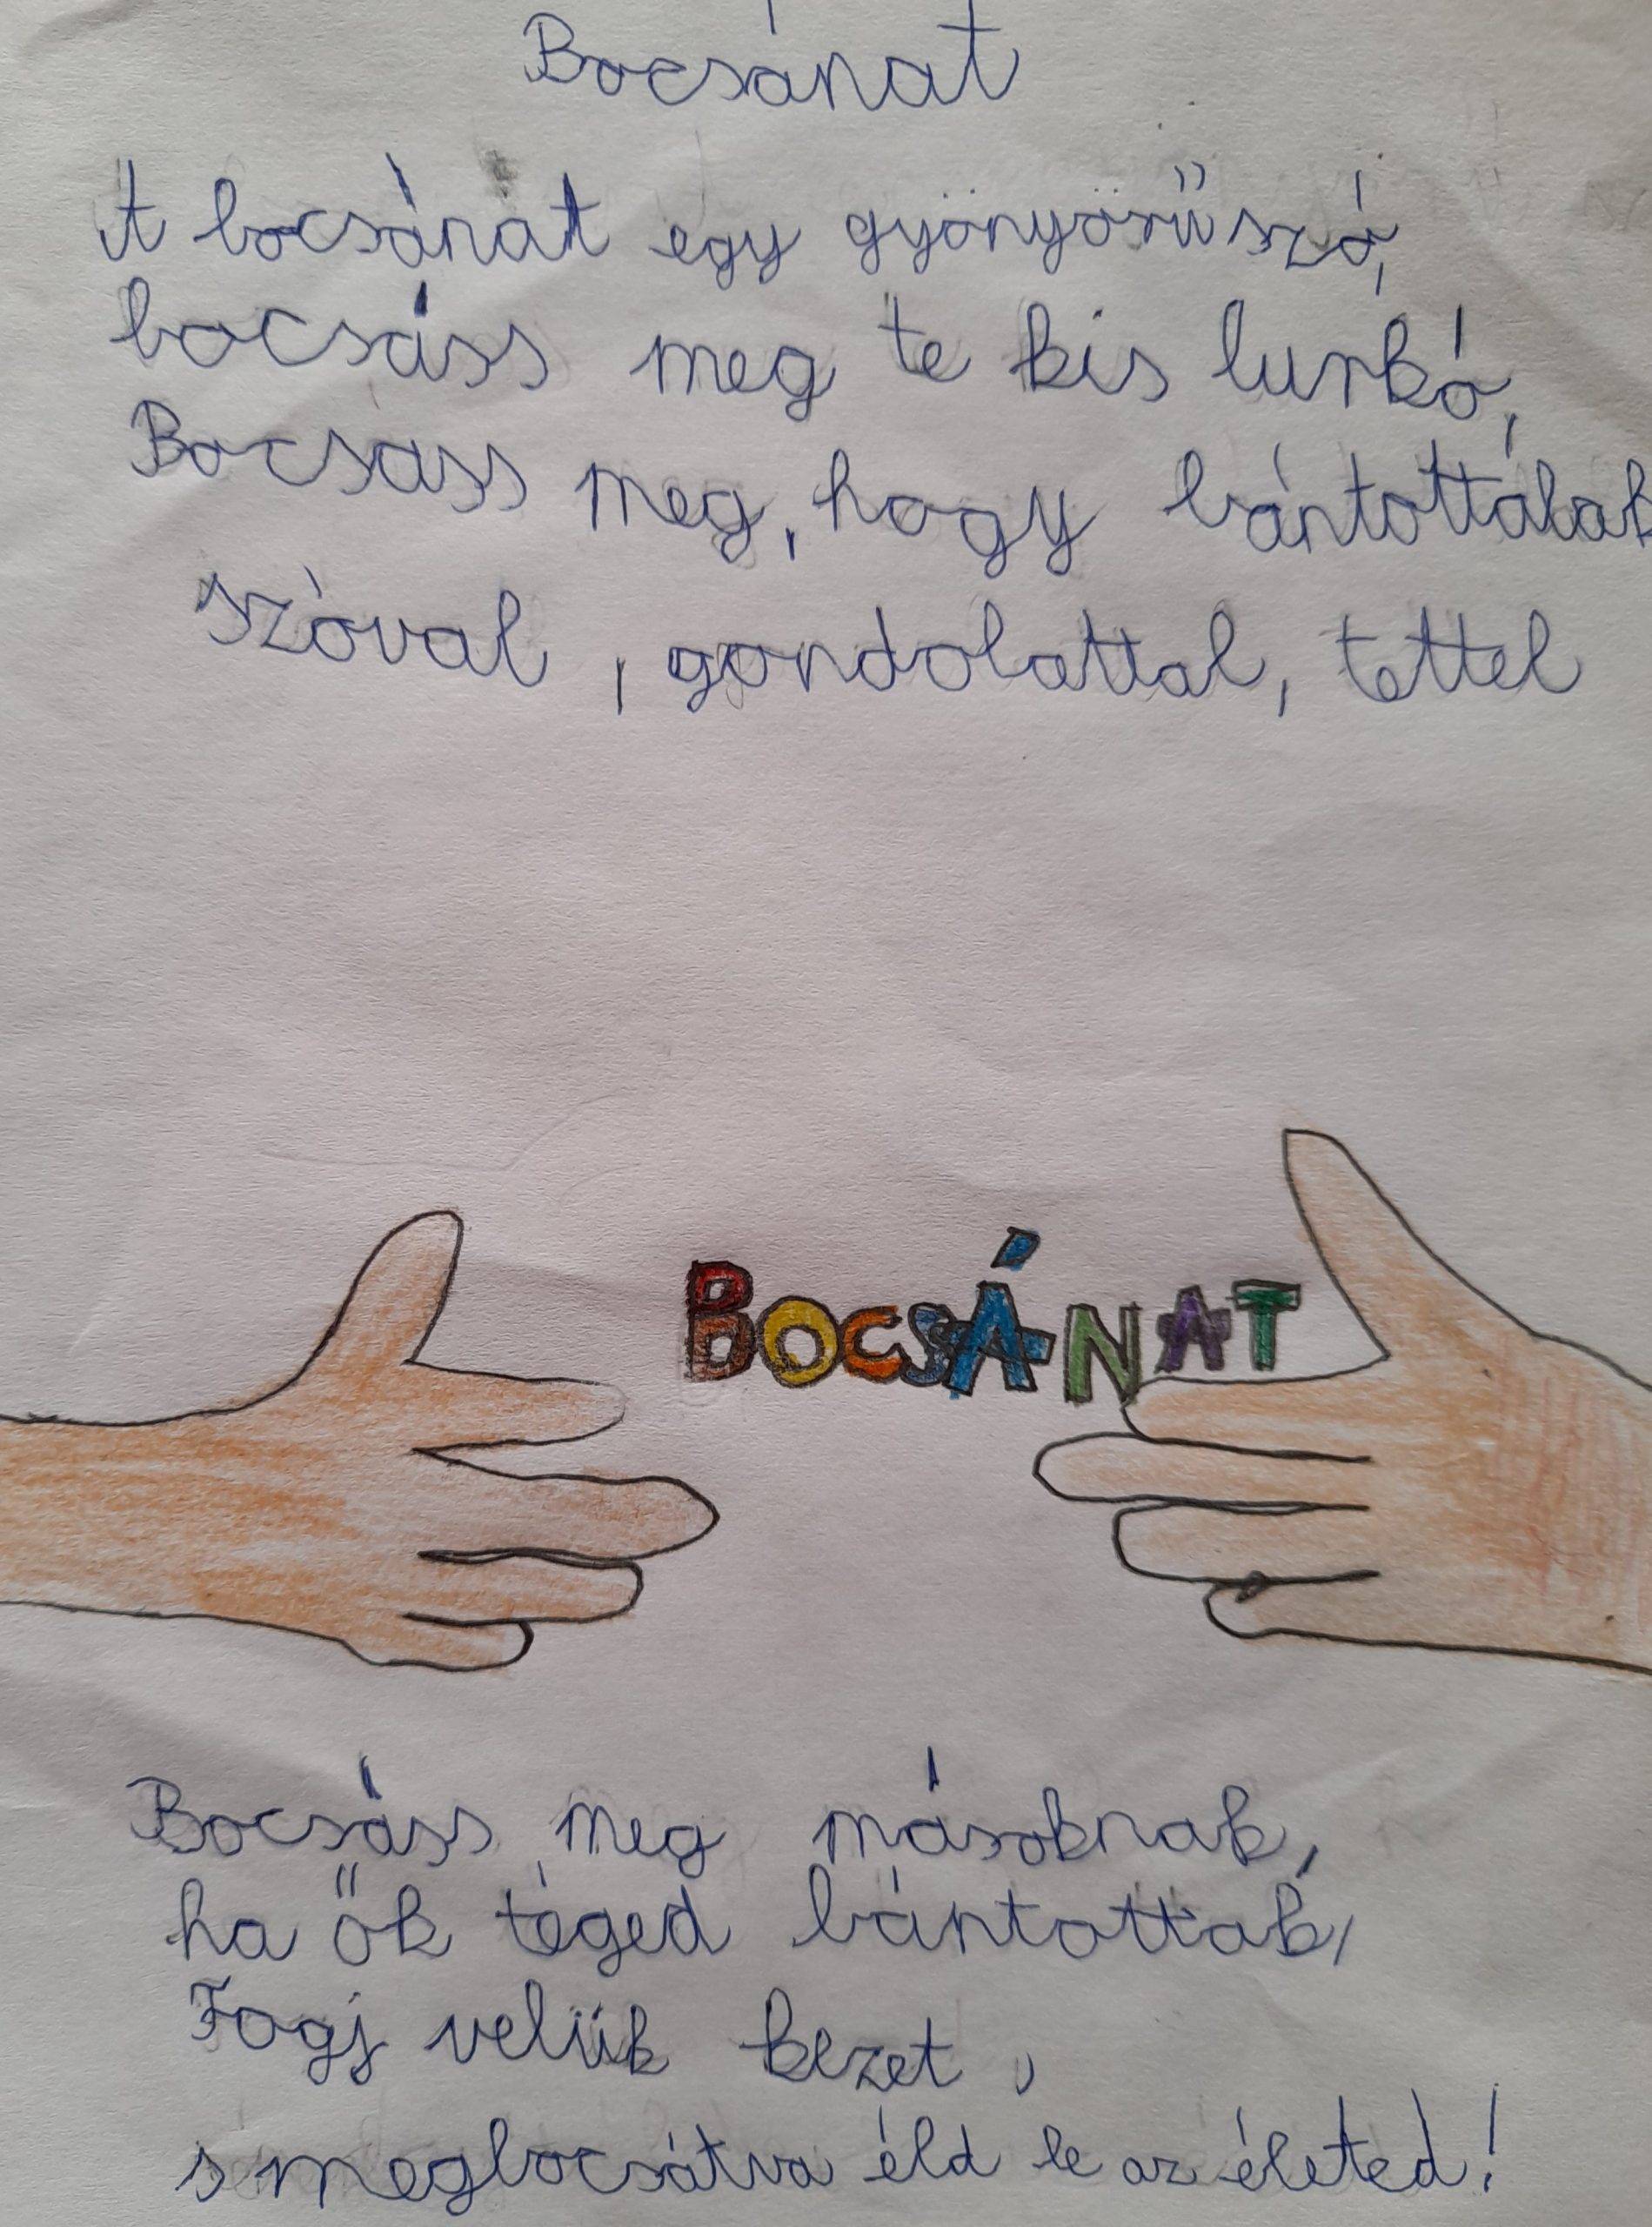 Bocsánat
A bocsánat egy gyönyörű szó,
bocsáss meg te kis lurkó,
Bocsáss meg, hogy bántottalak
szóval, gondolattal, tettel
BOCSÁNAT
Bocsáss meg másoknak,
ha ők téged bántottak,
Fogj velük kezet,
s megbocsátva éld le az életed!